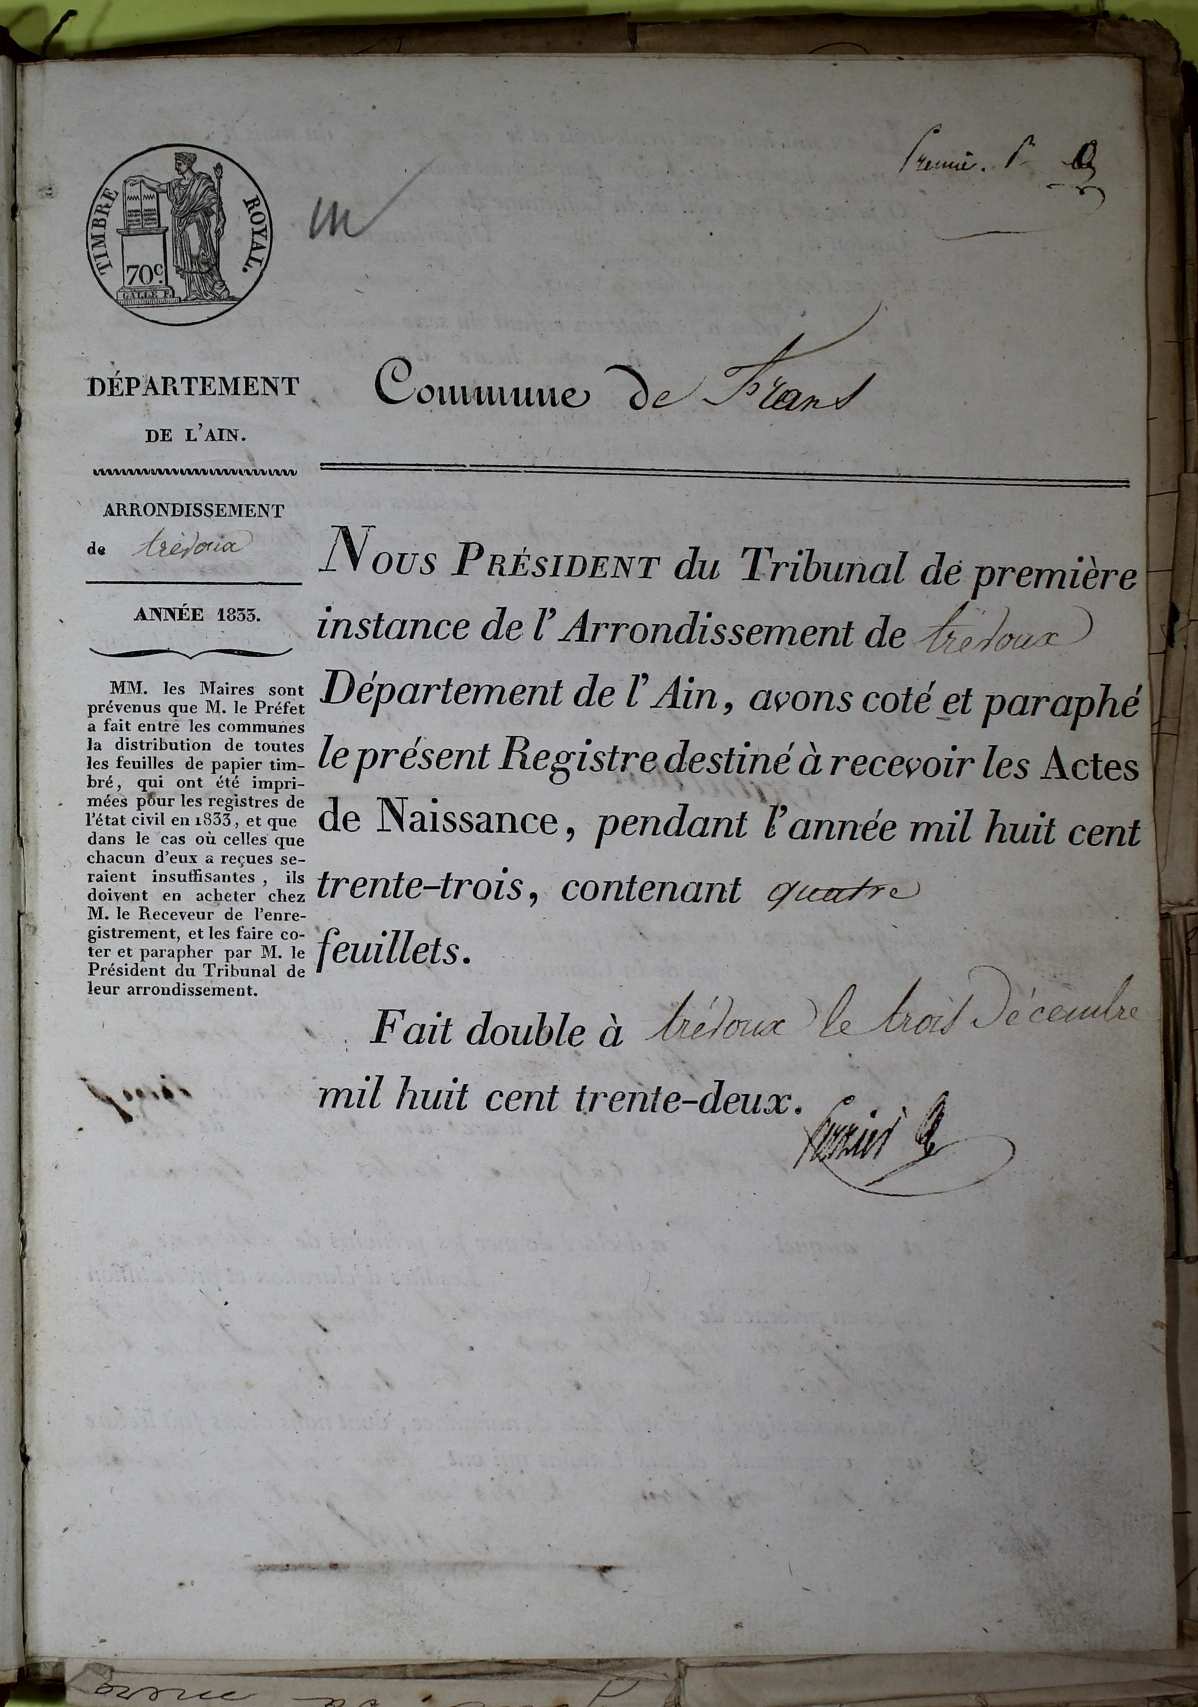 Premier. P.
TIMBRE ROYAL.
70c
GALLE F.
DÉPARTEMENT
DE L'AIN.
ARRONDISSEMENT
de trévoux
ANNÉE 1833.
MM. les Maires sont
prévenus que M. le Préfet
a fait entre les communes
la distribution de toutes
les feuilles de papier tim-
bré, qui ont été impri-
mées pour les registres de
l'état civil en 1833, et que
dans le cas où celles que
chacun d'eux a reçues se-
raient insuffisantes, ils
doivent en acheter chez
M. le Receveur de l'enre-
gistrement, et les faire co-
ter et parapher par M. le
Président du Tribunal de
leur arrondissement.
Commune de Frans
NOUS PRÉSIDENT du Tribunal de première
instance de l'Arrondissement de trévoux
Département de l'Ain, avons coté et paraphé
le présent Registre destiné à recevoir les Actes
de Naissance, pendant l'année mil huit cent
trente-trois, contenant quatre
feuillets.
Fait double à trévoux le trois Décembre
mil huit cent trente-deux.